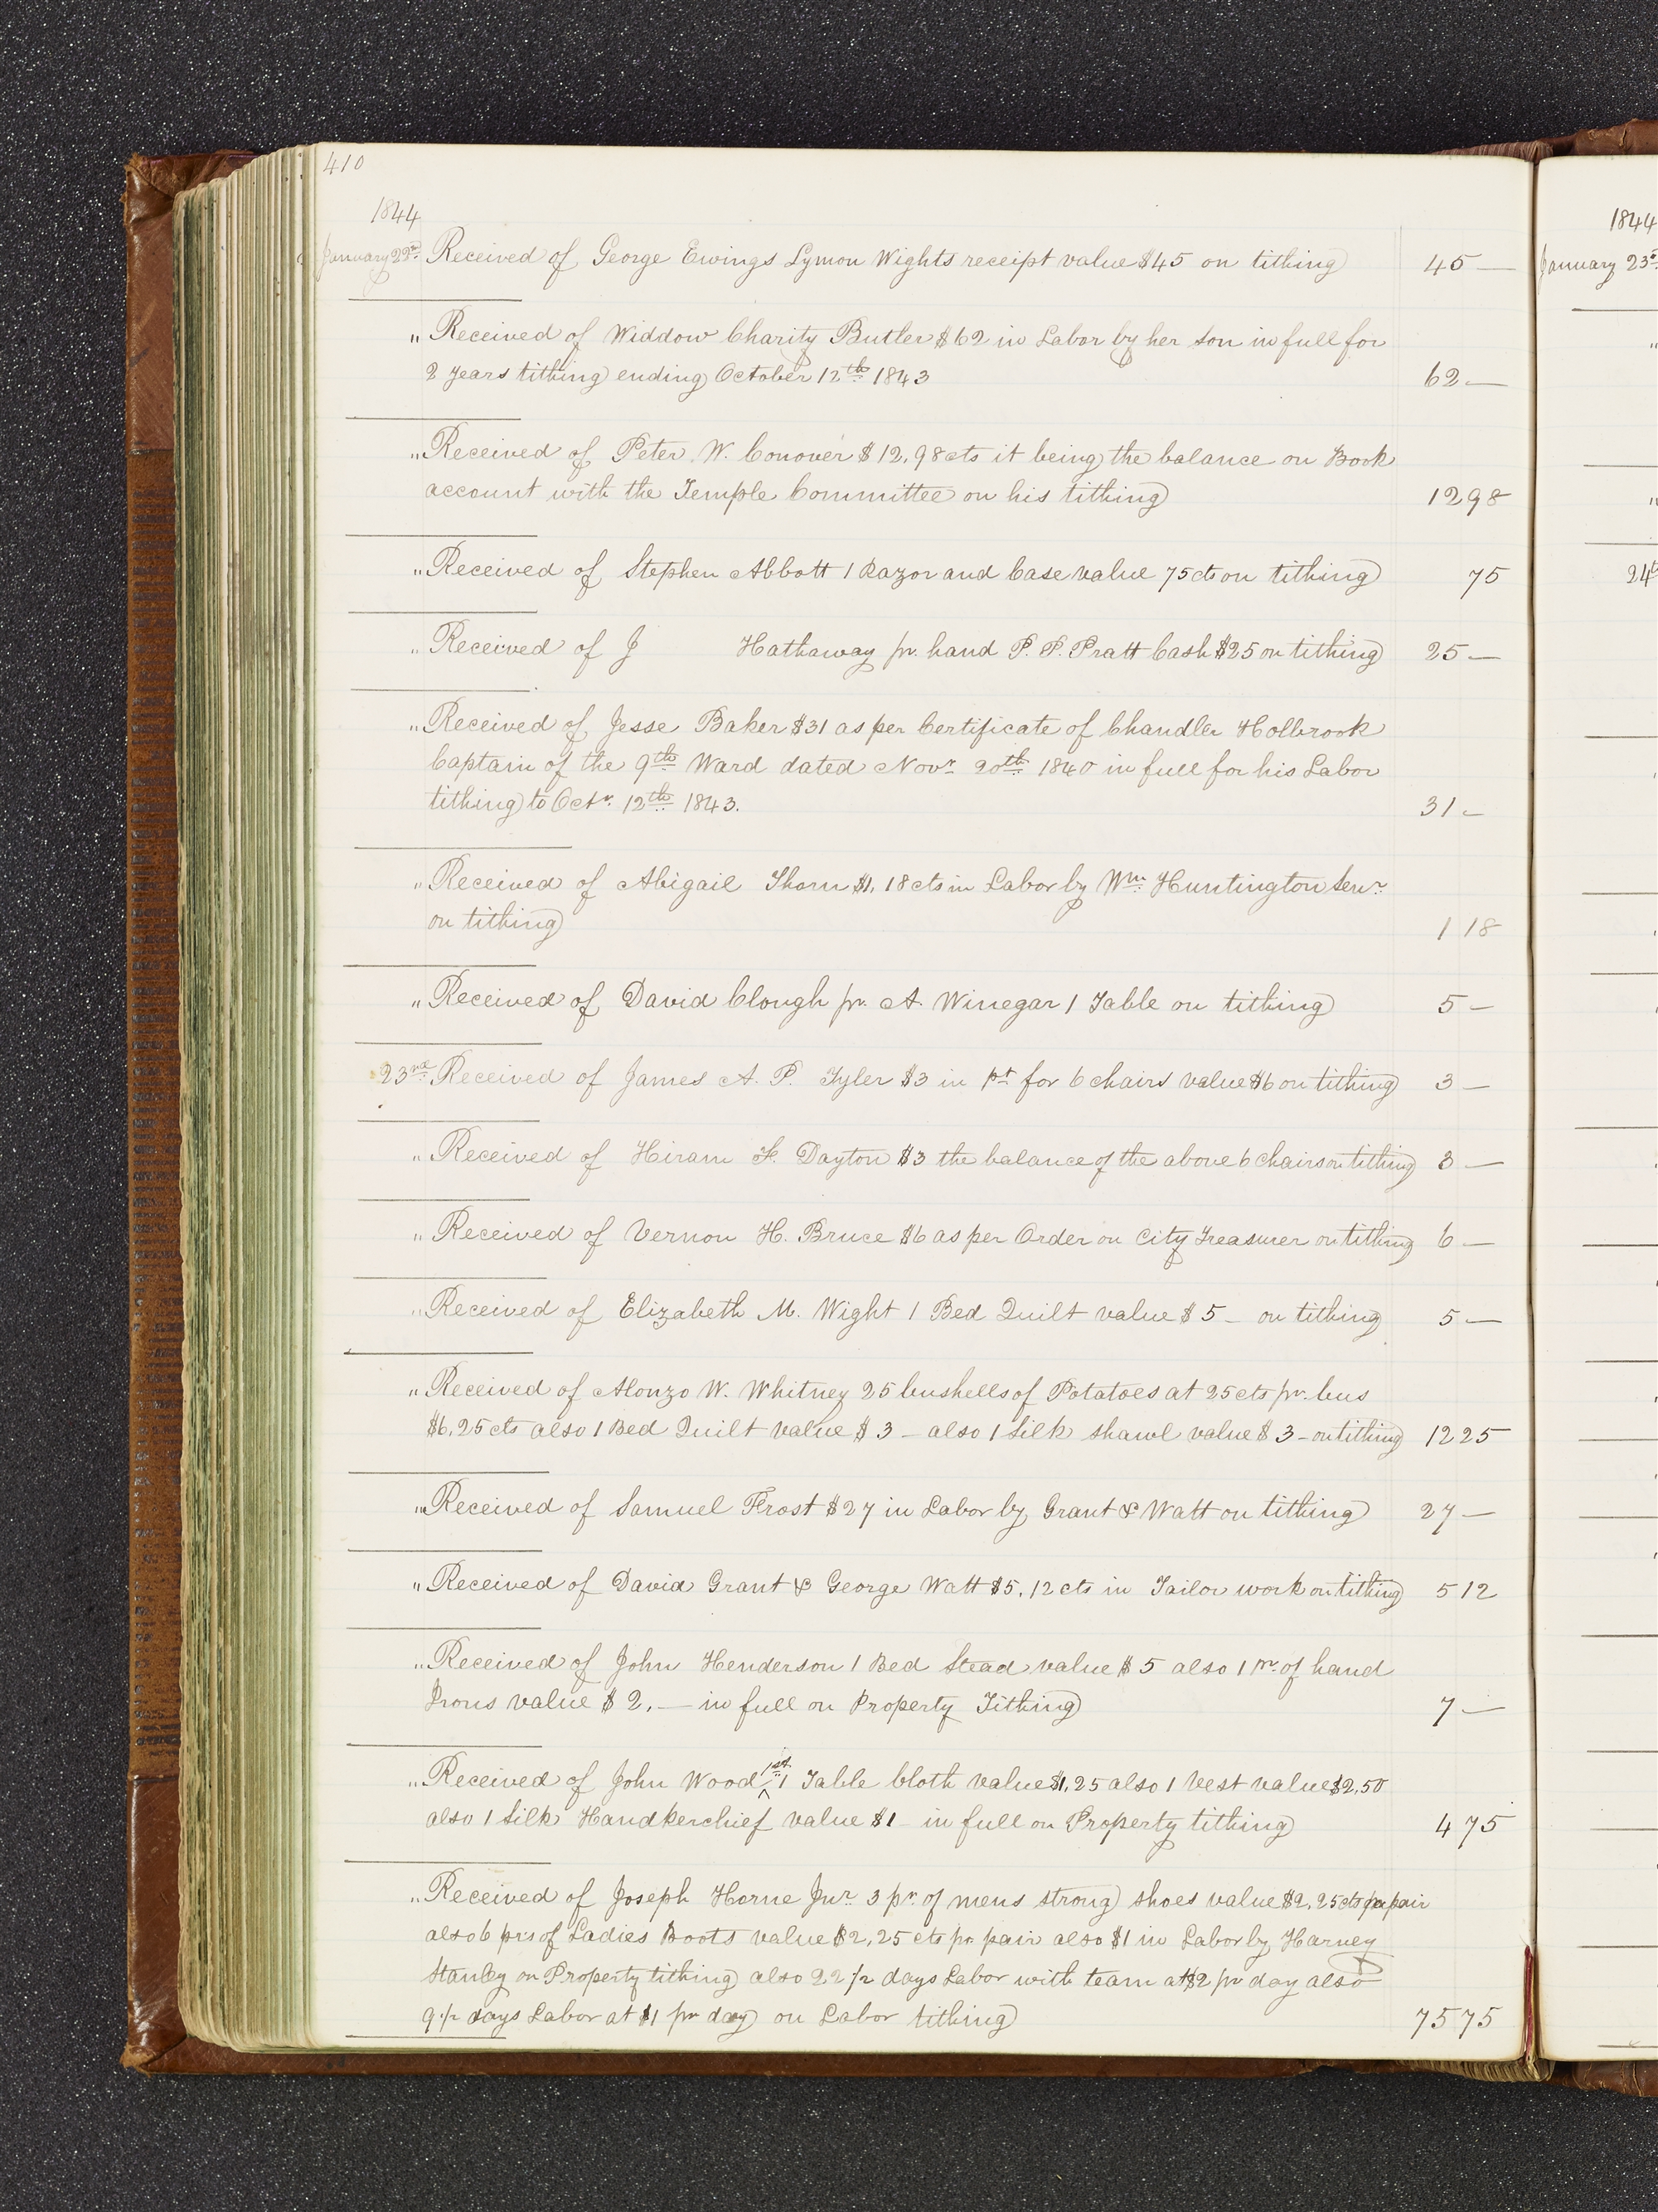 410
1844
January 22nd Received of George Ewings Lymon Wights receipt value $45 on tithing 45 —
" Received of Widdow Charity Butler $62 in Labor by her son in full for
2 years tithing ending October 12th 1843 62 —
" Received of Peter W. Conover $12,98cts it being the balance on Book
account with the Temple Committee on his tithing 12 98
" Received of Stephen Abbott 1 Razor and Case value 75cts on tithing 75
" Received of J Hathaway pr. hand P. P. Pratt Cash $25 on tithing 25 —
" Received of Jesse Baker $31 as per Certificate of Chandler Holbrook
Captain of the 9th Ward dated Novr 20th 1840 in full for his Labor
tithing to Octr. 12th 1843. 31 —
" Received of Abigail Thorn $1,18cts in Labor by Wm Huntington Senr
on tithing 1 18
" Received of David Clough pr. A. Winegar 1 Table on tithing 5 —
23rd Received of James A. P. Tyler $3 in pt for 6 chairs value $6 on tithing 3 —
" Received of Hiram F. Dayton $3 the balance of the above 6 chairs on tithing 3 —
" Received of Vernon H. Bruce $6 as per Order on City Treasurer on tithing 6 —
" Received of Elizabeth M. Wight 1 Bed Quilt value $5 — on tithing 5 —
" Received of Alonzo W. Whitney 25 bushells of Potatoes at 25cts pr. bus
$6,25cts also 1 Bed Quilt value $3 — also 1 Silk shawl value $3 — on tithing 12 25
" Received of Samuel Frost $27 in Labor by Grant & Watt on tithing 27 —
" Received of David Grant & George Watt $5,12cts in Tailor work on tithing 5 12
" Received of John Henderson 1 Bed Stead value $5 also 1 pr. of hand
Irons value $2, — in full on Property Tithing 7 —
" Received of John Wood 1st 1 Table Cloth value $1,25 also 1 Vest value $2,50
also 1 Silk Handkerchief value $1 — in full on Property tithing 4 75
" Received of Joseph Horne Junr 3 pr. of mens strong shoes value $2,25cts per pair
also 6 prs of Ladies Boots value $2,25cts pr pair also $1 in Labor by Harvey
Stanley on Property tithing also 22 1/2 days Labor with team at $2 pr day also
9 1/2 days Labor at $1 pr day on Labor tithing 75 75
1844
January 23d
24th